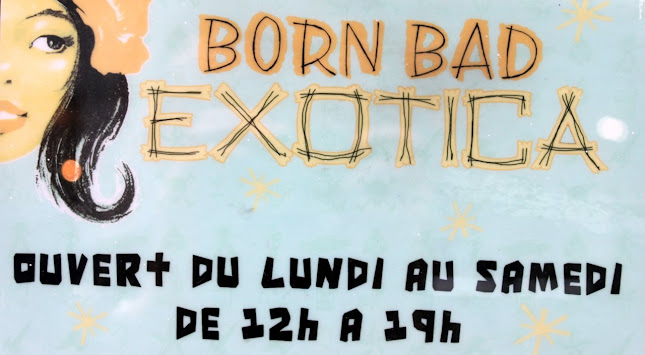 BORN BAD
EXOTICA
OUVERT DU LUNDI AU SAMEDI
DE 12h A 19h